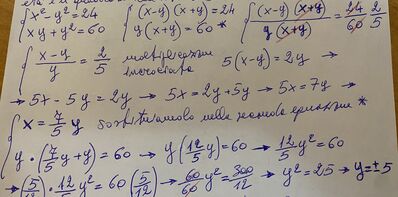 {x² - y² = 24 {(x-y)(x+y) = 24 {(x-y)(x+y)/y(x+y) = 24/60 2/5
{xy + y² = 60 {y(x+y) = 60 *
{(x-y)/y = 2/5 moltiplicazione incrociata 5(x-y) = 2y →
→ 5x - 5y = 2y → 5x = 2y + 5y → 5x = 7y →
{x = 7/5 y sostituiamolo nella seconda equazione *
y · (7/5 y + y) = 60 → y(12/5 y) = 60 → 12/5 y² = 60
→ (5/12) · 12/5 y² = 60 (5/12) → 60/60 y² = 300/12 → y² = 25 → y = ±5